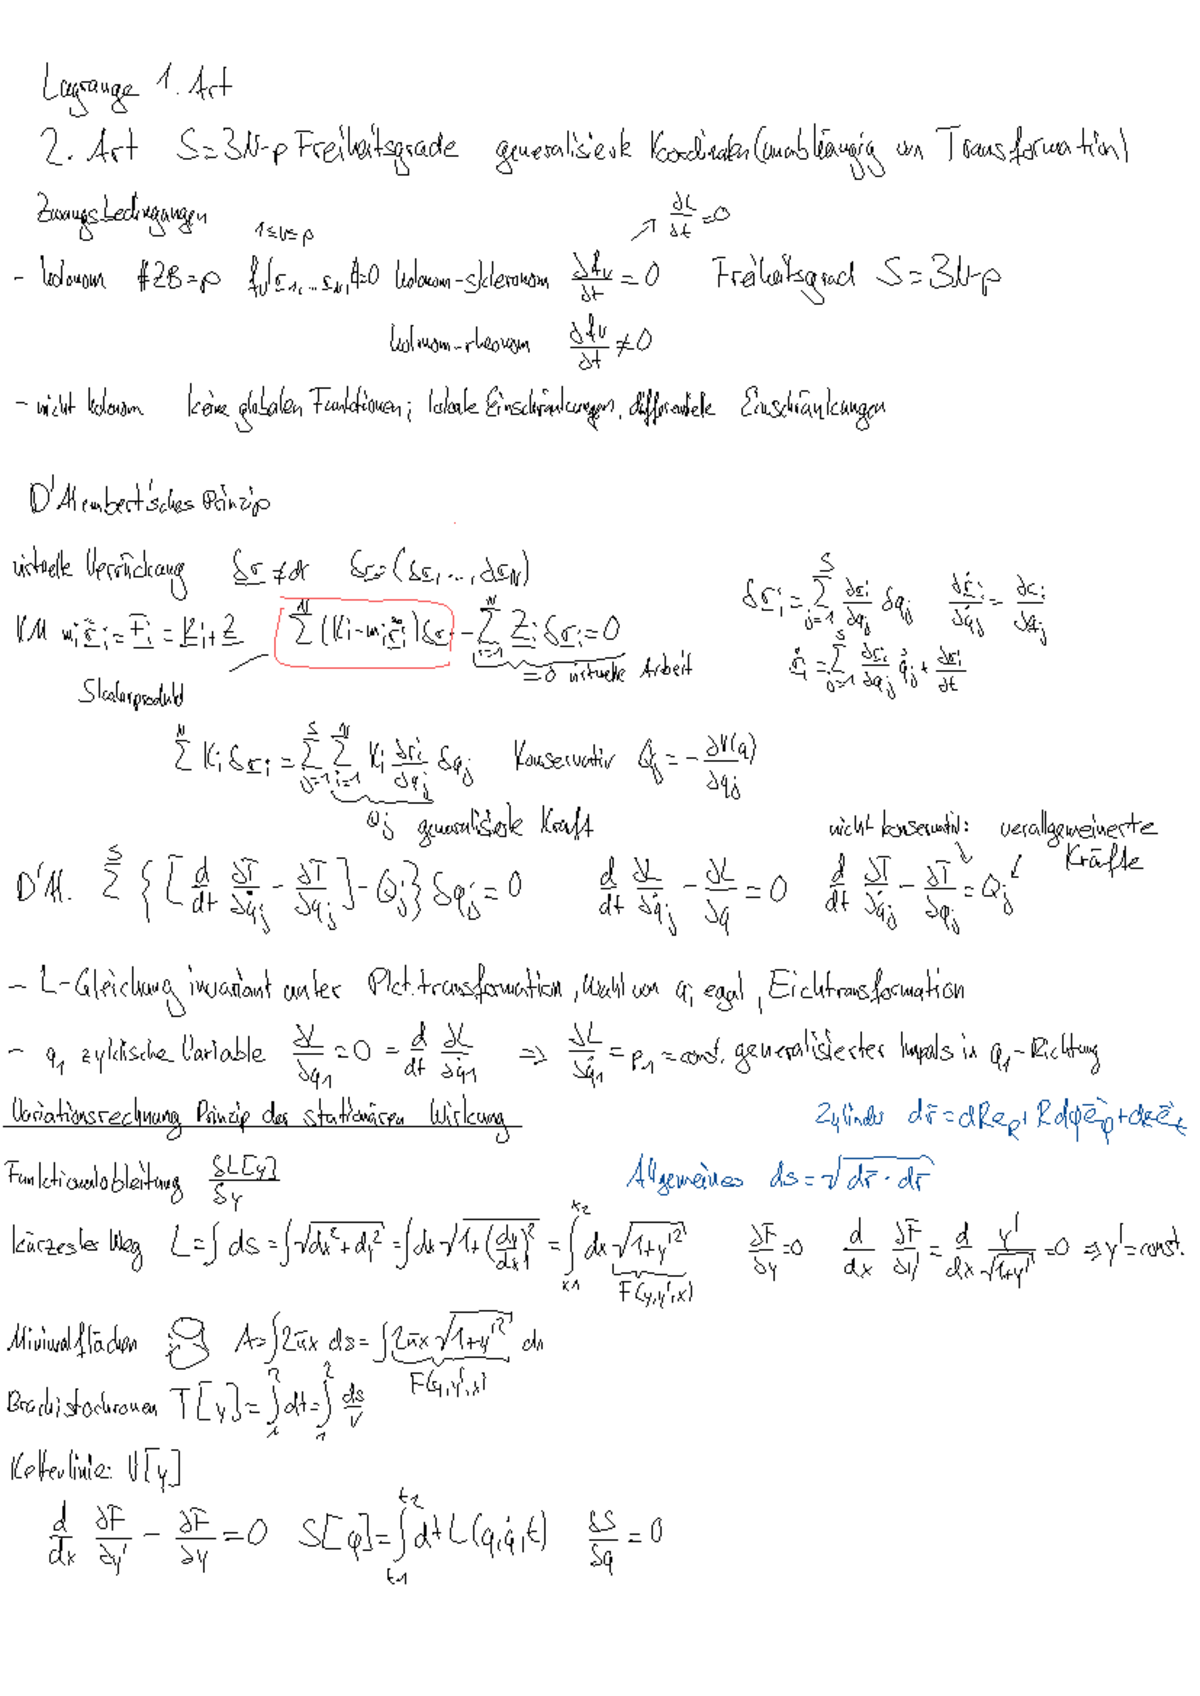 Lagrange 1. Art
2. Art S=3N-p Freiheitsgrade generalisierte Koordinaten (unabhängig von Transformation)
Zwangsbedingungen 1≤ν≤p ↗ ∂L/∂t=0
- holonom #ZB=p f_ν(r_1,...r_N,t)=0 holonom-skleronom ∂f_ν/∂t = 0 Freiheitsgrad S=3N-p
holonom-rheonom ∂f_ν/∂t ≠0
- nicht holonom keine globalen Funktionen; lokale Einschränkungen, differentielle Einschränkungen
D'Alembert'sches Prinzip
virtuelle Verrückung δr ≠dr δr=(δr_1,...,δr_N) δr_i=∑_{j=1}^S ∂r_i/∂q_j δq_j ∂ṙ_i/∂q̇_j = ∂r_i/∂q_j
KM m_i r̈_i=F_i=K_i+Z ∑^N (K_i-m_i r̈_i)δr -∑_{i=1}^N Z_i δr_i=0 ṙ_i=∑_{j=1}^S ∂r_i/∂q_j q̇_j+∂r_i/∂t
=0 virtuelle Arbeit
Skalarprodukt
∑^N K_i δr_i=∑_{j=1}^S ∑_{i=1}^N K_i ∂r_i/∂q_j δq_j Konservativ Q_j=-∂V(q)/∂q_j
Q_j generalisierte Kraft nicht konservativ: verallgemeinerte Kräfte
D'Al. ∑^S {[d/dt ∂T/∂q̇_j - ∂T/∂q_j]-Q_j}δq_j=0 d/dt ∂L/∂q̇_j - ∂L/∂q =0 d/dt ∂T/∂q̇_j - ∂T/∂q_j=Q_j
- L-Gleichung invariant unter Pkt.transformation, Wahl von q_i egal, Eichtransformation
- q_1 zyklische Variable ∂L/∂q_1 =0 = d/dt ∂L/∂q̇_1 ⇒ ∂L/∂q̇_1 = p_1 =const. generalisierter Impuls in q_1-Richtung
Variationsrechnung Prinzip der stationären Wirkung Zylinder dr⃗=dRe_R+Rdφe⃗_φ+dze⃗_z
Funktionalableitung δL[y]/δy Allgemeines ds=√(dr⃗·dr⃗)
kürzester Weg L=∫ds=∫√(dx²+dy²)=∫dx√(1+(dy/dx)²)=∫_{x1}^{x2} dx√(1+y'²) ∂F/∂y=0 d/dx ∂F/∂y'=d/dx y'/√(1+y'²)=0 ⇒y'=const.
F(y,y',x)
Minimalflächen A=∫2πx ds=∫2πx√(1+y'²) dx
F(y,y',x)
Brachistochronen T[y]=∫_1^2 dt=∫_1^2 ds/v
Kettenlinie: U[y]
d/dx ∂F/∂y' - ∂F/∂y =0 S[q]=∫_{t1}^{t2} dt L(q,q̇,t) δS/δq =0